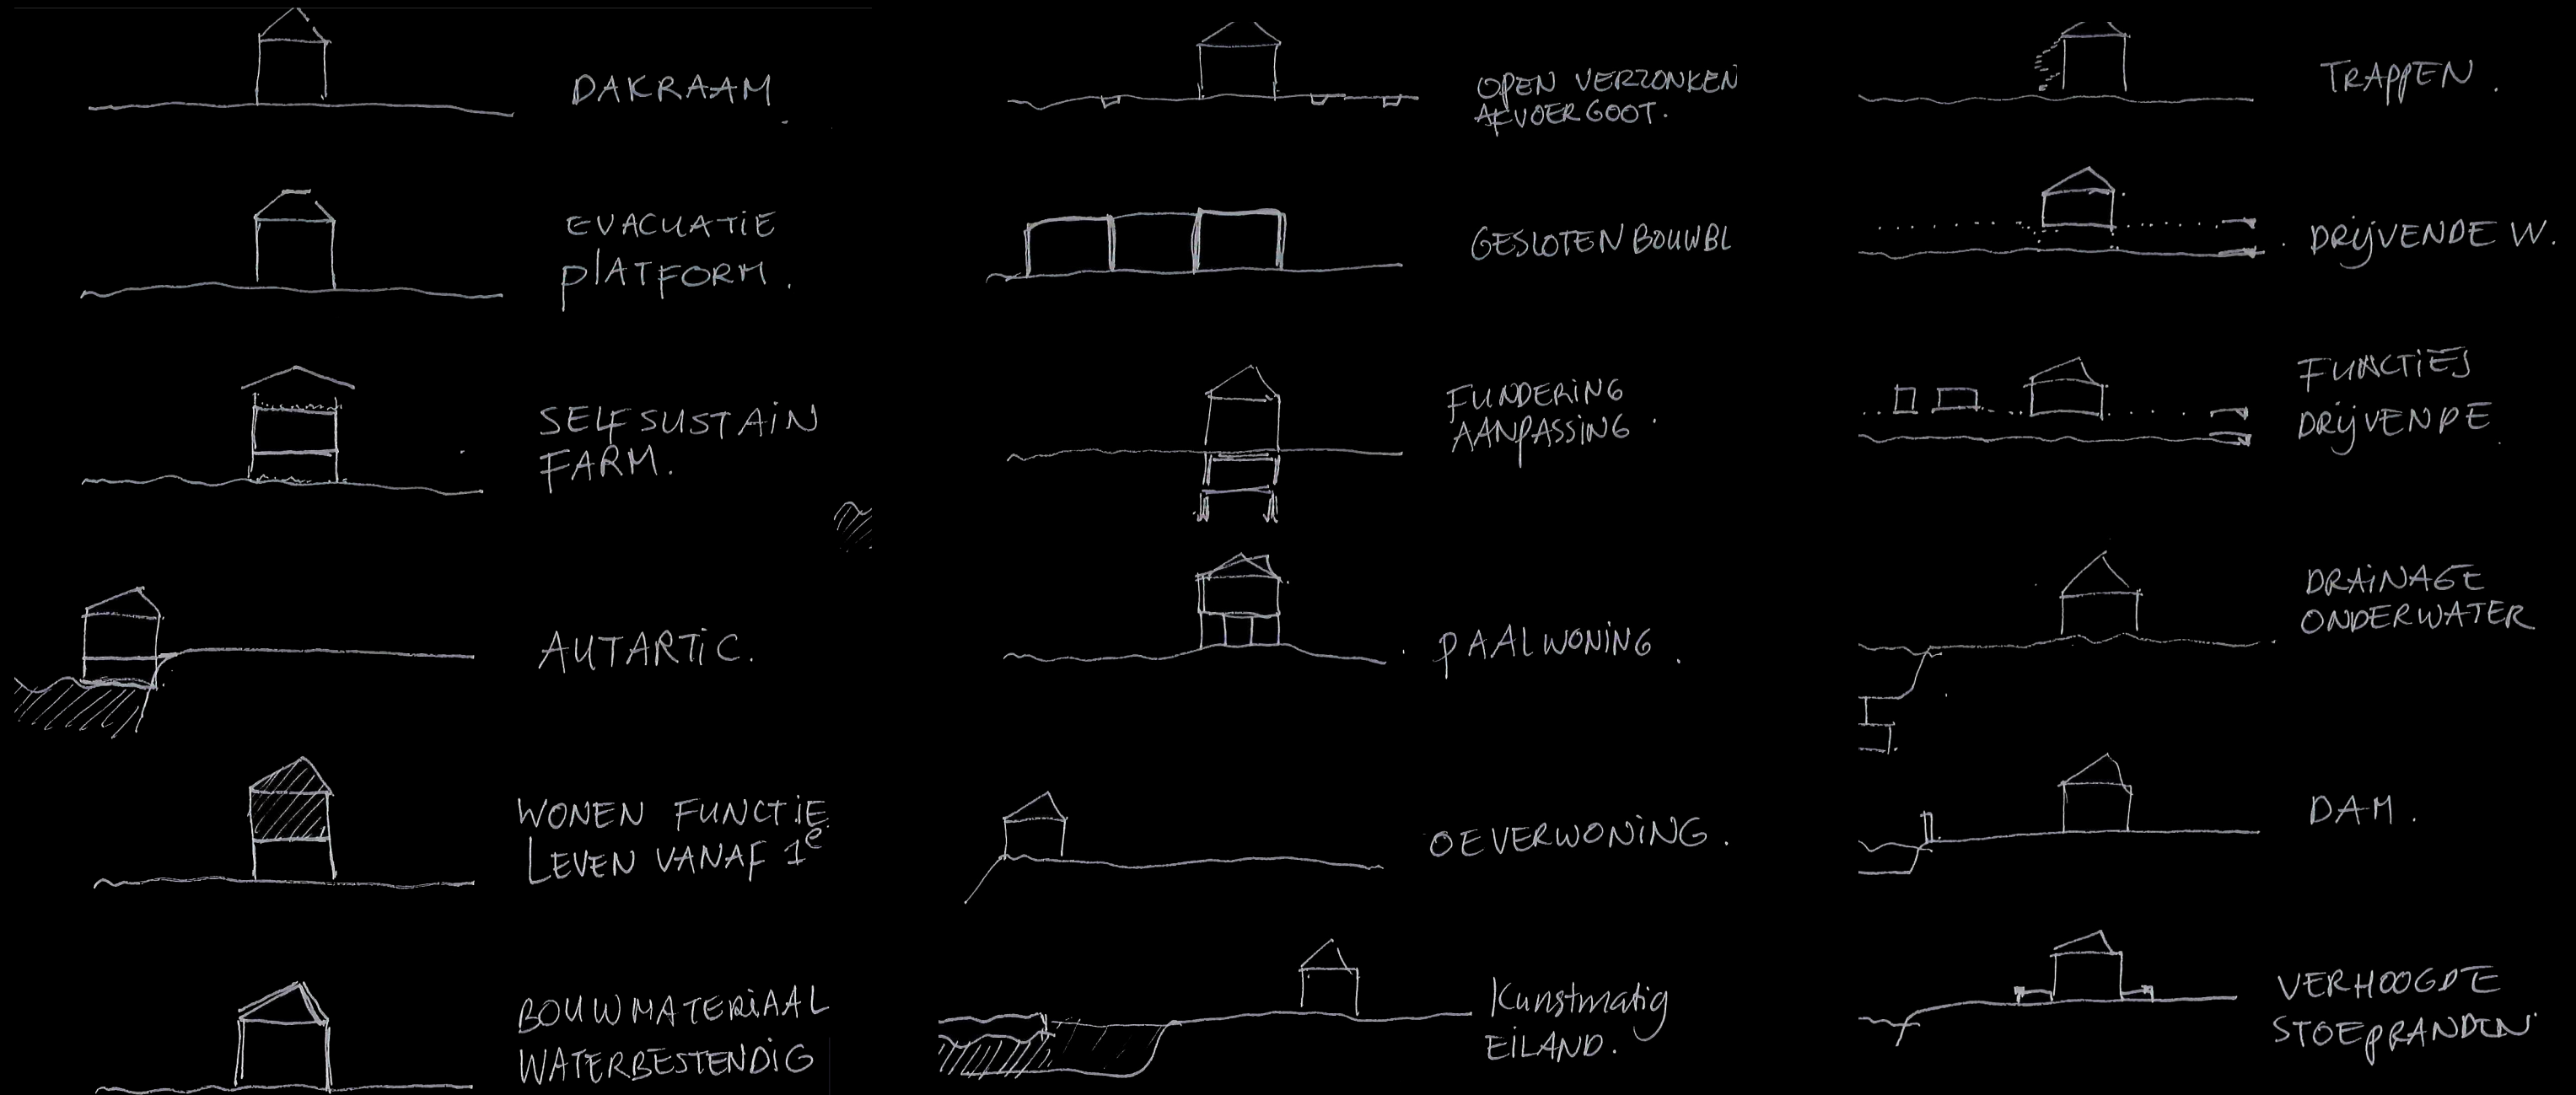 DAKRAAM.
EVACUATIE
PLATFORM.
SELFSUSTAIN
FARM.
AUTARTIC.
WONEN FUNCTIE.
LEVEN VANAF 1e
BOUWMATERIAAL
WATERBESTENDIG
OPEN VERZONKEN
AFVOERGOOT.
GESLOTEN BOUWBL
FUNDERING
AANPASSING.
PAALWONING.
OEVERWONING.
Kunstmatig
EILAND.
TRAPPEN.
DRIJVENDE W.
FUNCTIES
DRIJVENDE
DRAINAGE
ONDERWATER
DAM.
VERHOOGDE
STOEPRANDEN